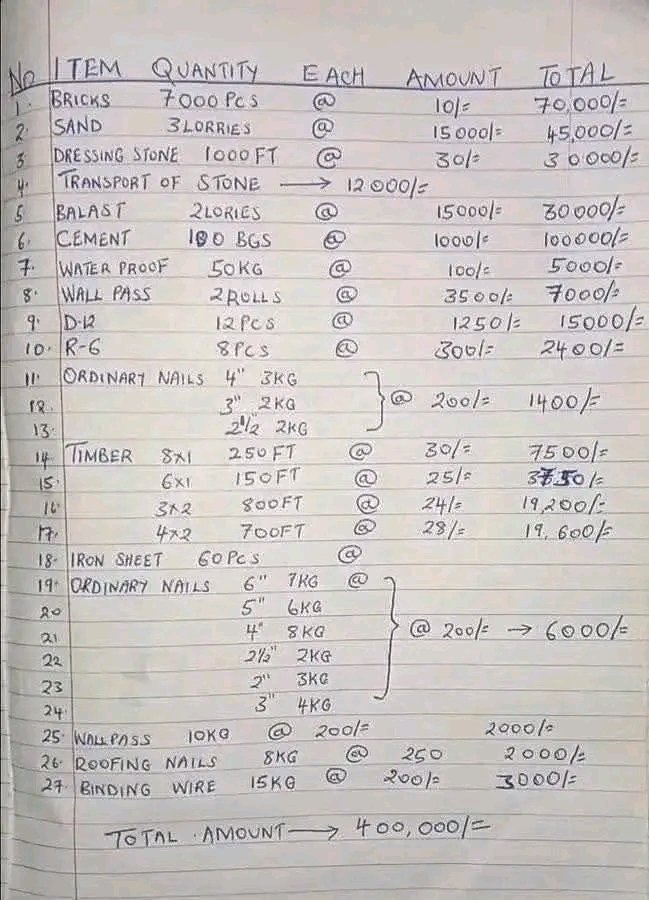 No ITEM QUANTITY EACH AMOUNT TOTAL
1. BRICKS 7000 PCS @ 10/= 70,000/=
2. SAND 3 LORRIES @ 15000/= 45,000/=
3 DRESSING STONE 1000 FT @ 30/= 30000/=
4. TRANSPORT OF STONE → 12000/=
5 BALAST 2 LORIES @ 15000/= 30000/=
6. CEMENT 100 BGS @ 1000/= 100000/=
7. WATER PROOF 50KG @ 100/= 5000/=
8. WALL PASS 2 ROLLS @ 3500/= 7000/=
9. D-12 12 PCS @ 1250/= 15000/=
10. R-6 8 PCS @ 300/= 2400/=
11. ORDINARY NAILS 4" 3KG
12. 3" 2KG @ 200/= 1400/=
13. 2 1/2 2KG
14 TIMBER 8x1 250 FT @ 30/= 7500/=
15. 6x1 150 FT @ 25/= 3750/=
16 3x2 800FT @ 24/= 19,200/=
17. 4x2 700FT @ 28/= 19,600/=
18. IRON SHEET 60 PCS @
19. ORDINARY NAILS 6" 7KG @
20 5" 6KG
21 4" 8KG @ 200/= → 6000/=
22 2 1/2" 2KG
23 2" 3KG
24. 3" 4KG
25. WALLPASS 10KG @ 200/= 2000/=
26. ROOFING NAILS 8KG @ 250 2000/=
27. BINDING WIRE 15KG @ 200/= 3000/=
TOTAL AMOUNT → 400,000/=